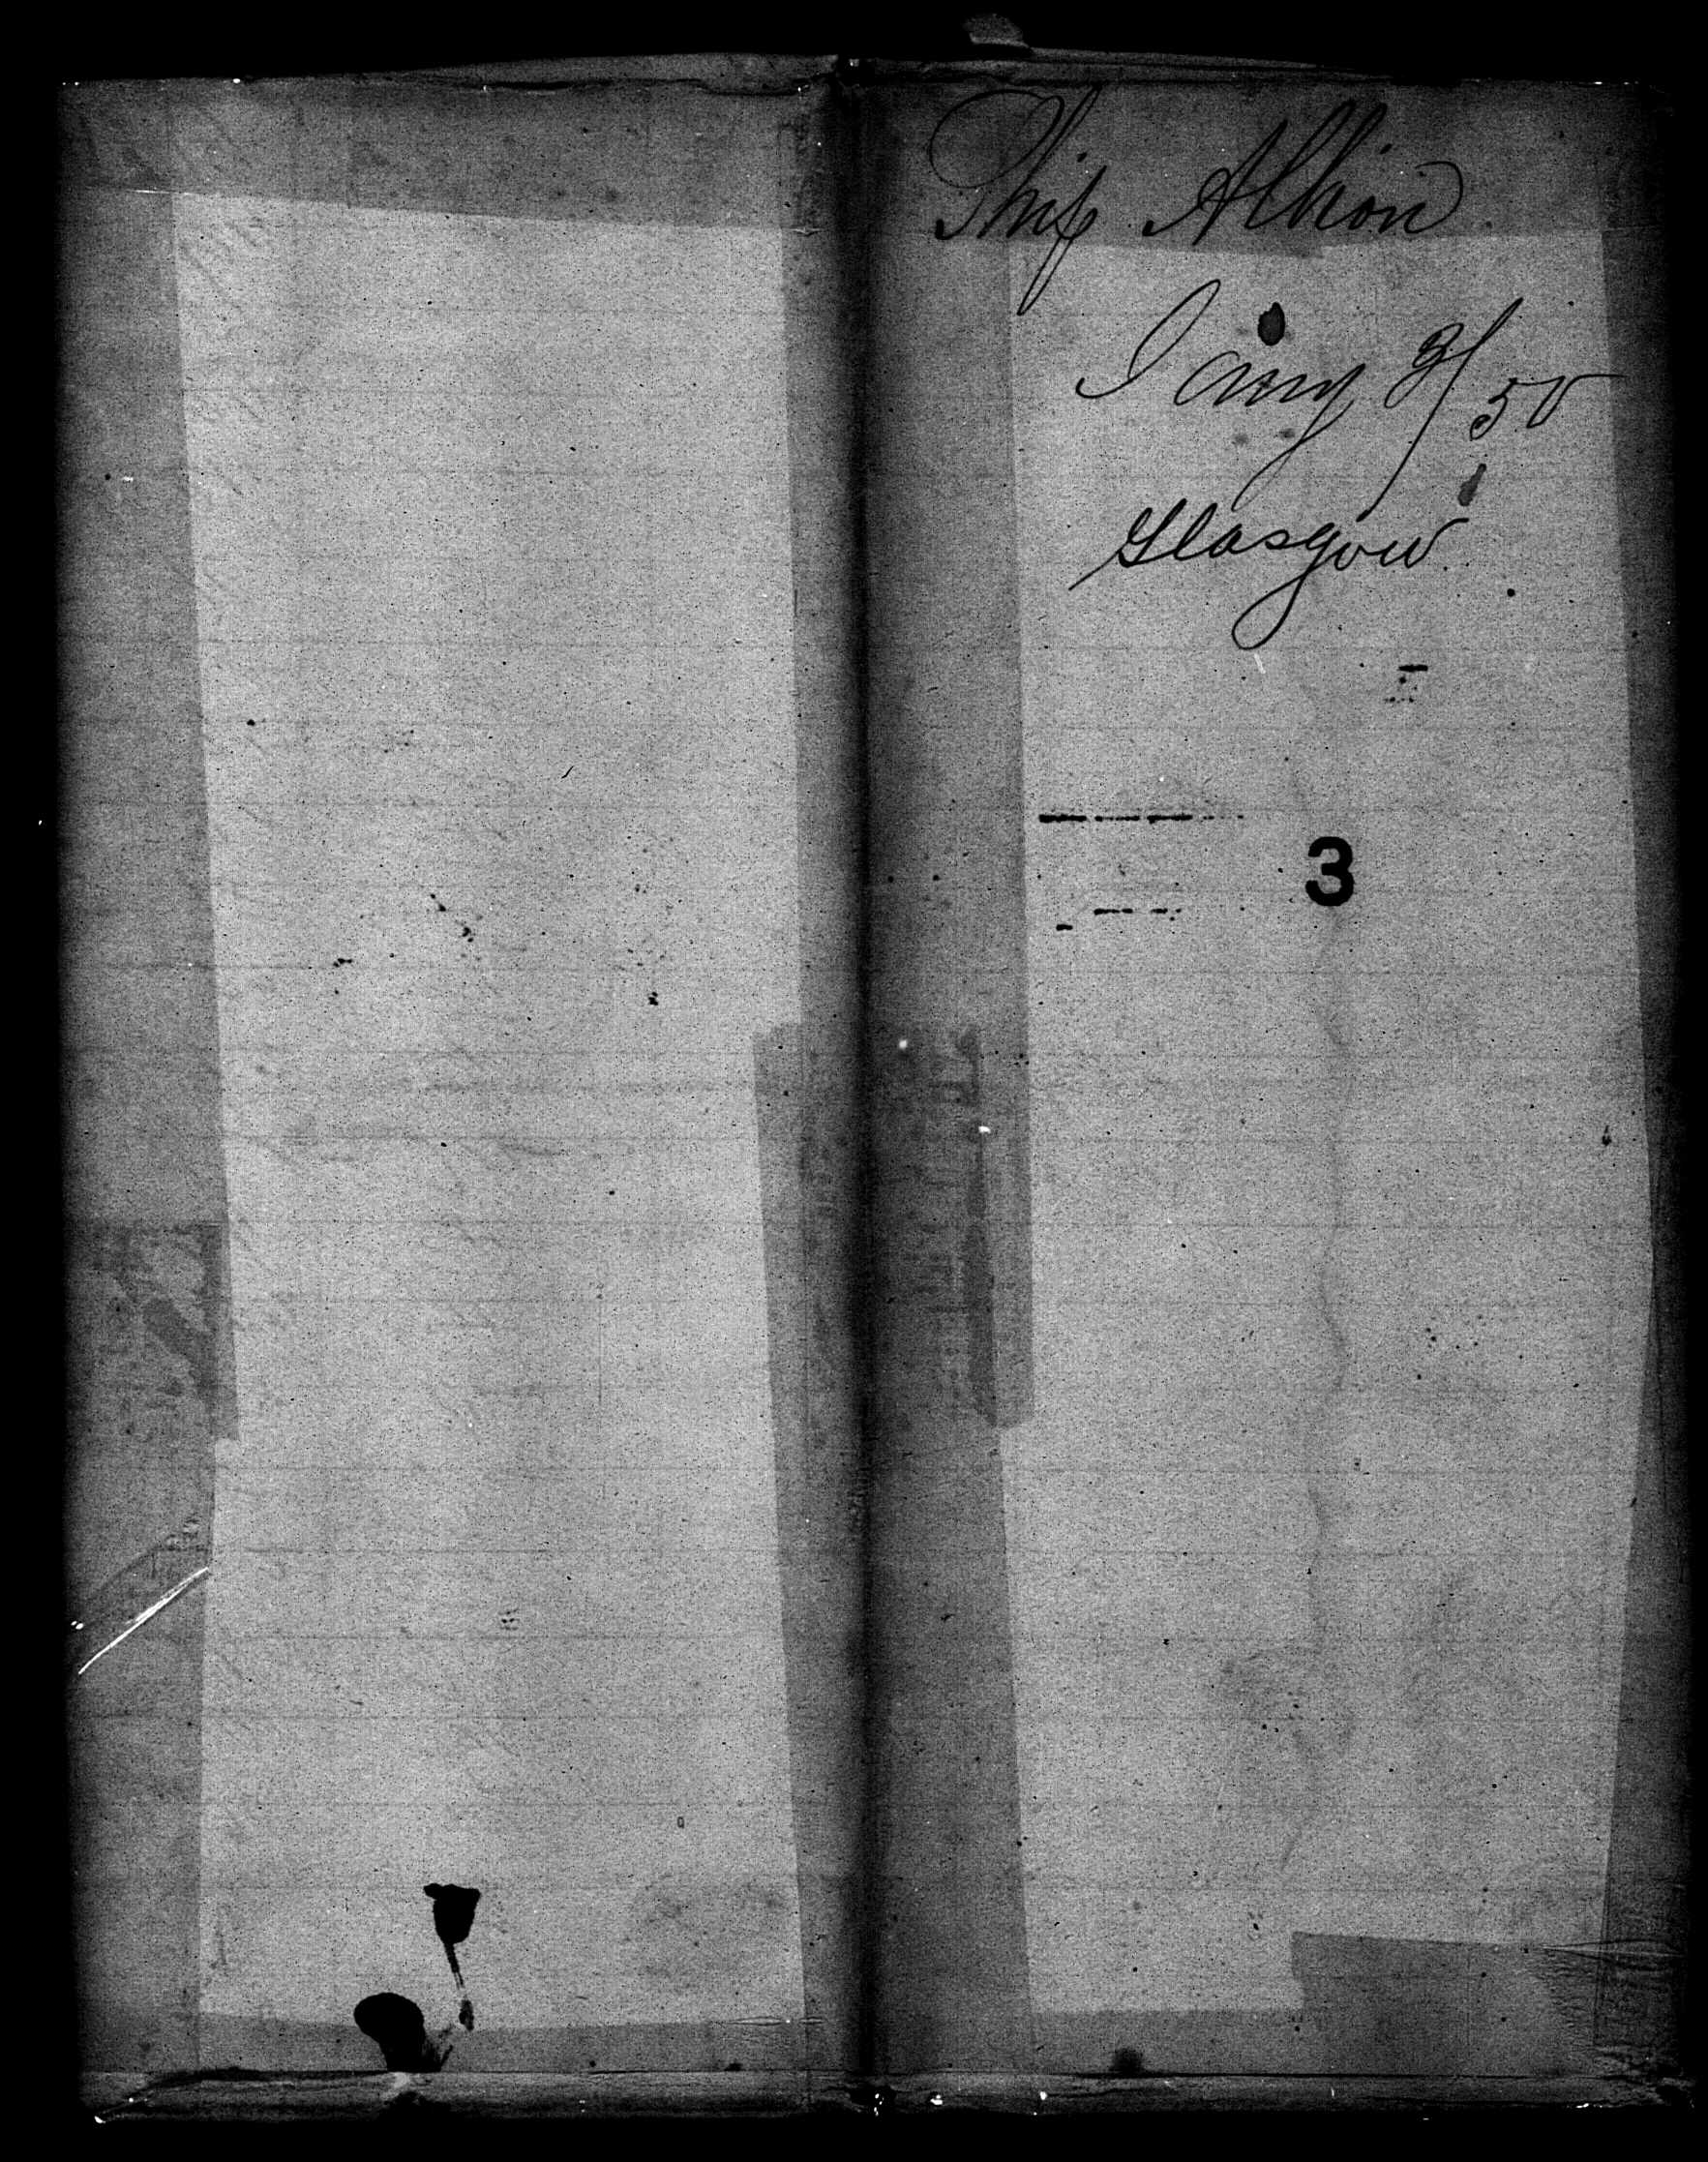 Ship Albion
Jany 3/50
Glasgow.
3